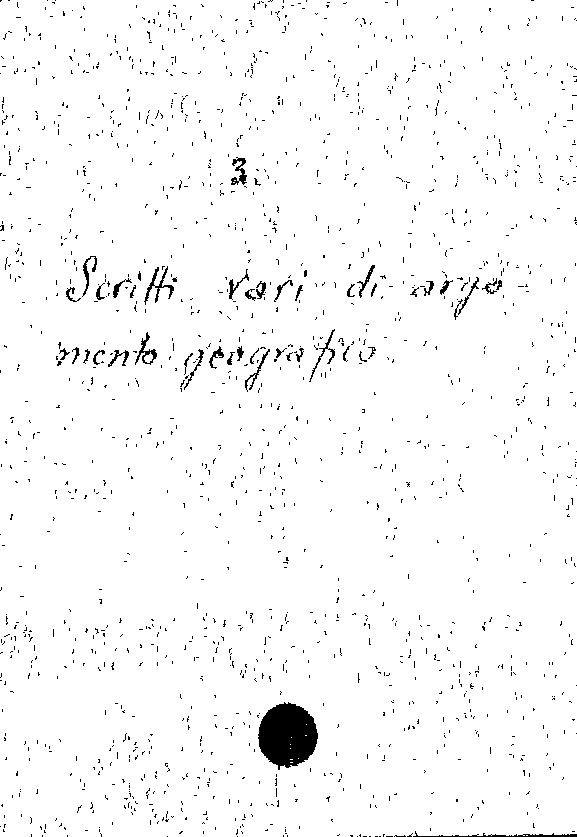 3.
Scritti vari di argo-
mento geografico